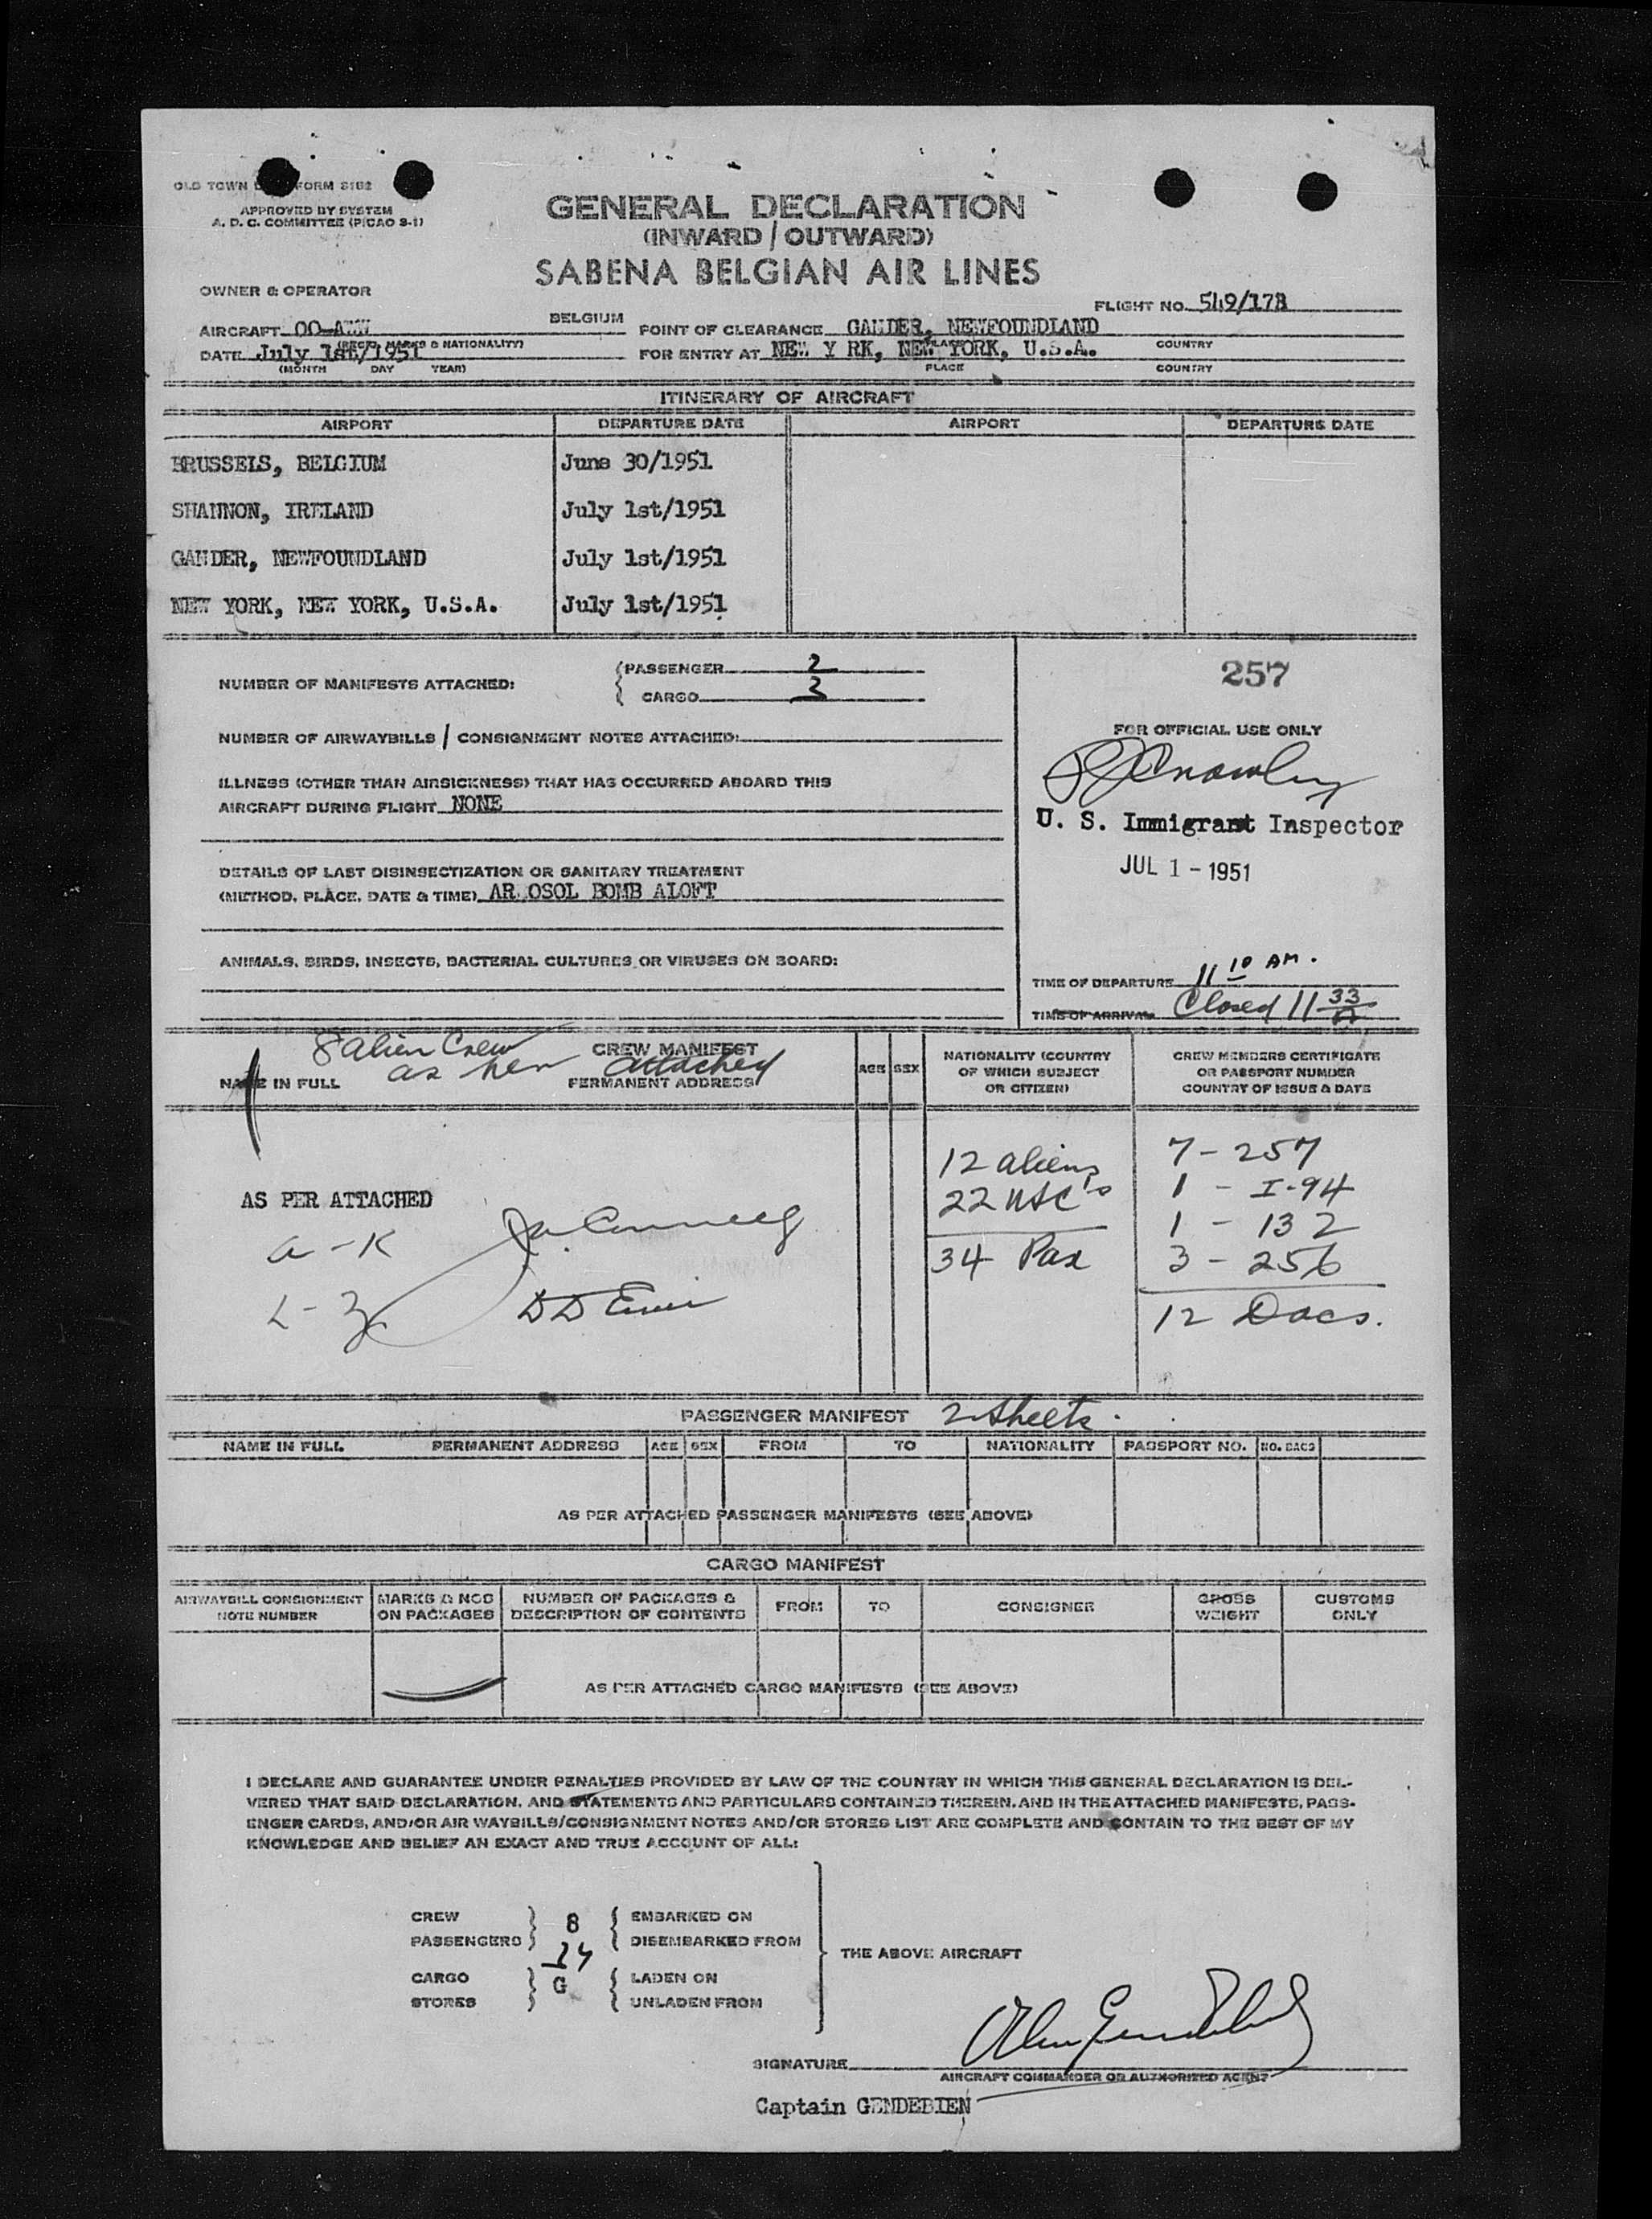 OLD TOWN FORM
APPROVED BY SYSTEM
A. D. C. COMMITTEE (PICAO 9-1)
GENERAL DECLARATION
(INWARD / OUTWARD)
SABENA BELGIAN AIR LINES
OWNER & OPERATOR
FLIGHT NO. 549/178
BELGIUM
AIRCRAFT
POINT OF CLEARANCE GANDER, NEWFOUNDLAND
(REG'D. MARKS & NATIONALITY)
PLACE COUNTRY
DATE July 1st/1951
FOR ENTRY AT NEW Y RK, NEW YORK, U.S.A.
(MONTH DAY YEAR)
PLACE COUNTRY
ITINERARY OF AIRCRAFT
AIRPORT DEPARTURE DATE AIRPORT DEPARTURE DATE
BRUSSELS, BELGIUM June 30/1951
SHANNON, IRELAND July 1st/1951
GANDER, NEWFOUNDLAND July 1st/1951
NEW YORK, NEW YORK, U.S.A. July 1st/1951
NUMBER OF MANIFESTS ATTACHED: PASSENGER 2
CARGO
257
NUMBER OF AIRWAYBILLS / CONSIGNMENT NOTES ATTACHED:
FOR OFFICIAL USE ONLY
ILLNESS (OTHER THAN AIRSICKNESS) THAT HAS OCCURRED ABOARD THIS
AIRCRAFT DURING FLIGHT NONE
U. S. Immigrant Inspector
JUL 1 - 1951
DETAILS OF LAST DISINSECTIZATION OR SANITARY TREATMENT
(METHOD, PLACE, DATE & TIME) AR OSOL BOMB ALOFT
ANIMALS, BIRDS, INSECTS, BACTERIAL CULTURES OR VIRUSES ON BOARD:
TIME OF DEPARTURE 11 10 AM.
TIME OF ARRIVAL Closed 11 33
8 alien Crew
as per attached
CREW MANIFEST
NAME IN FULL PERMANENT ADDRESS
AGE SEX
NATIONALITY (COUNTRY
OF WHICH SUBJECT
OR CITIZEN)
CREW MEMBERS CERTIFICATE
OR PASSPORT NUMBER
COUNTRY OF ISSUE & DATE
12 aliens 7 - 257
AS PER ATTACHED 22 USC's 1 - I-94
a - K 1 - 132
34 Pax 3 - 256
L - Z
12 Docs.
PASSENGER MANIFEST 2 sheets.
NAME IN FULL PERMANENT ADDRESS AGE SEX FROM TO NATIONALITY PASSPORT NO. NO. BAGS
AS PER ATTACHED PASSENGER MANIFESTS (SEE ABOVE)
CARGO MANIFEST
AIRWAYBILL CONSIGNMENT
NOTE NUMBER
MARKS & NOS
ON PACKAGES
NUMBER OF PACKAGES &
DESCRIPTION OF CONTENTS
FROM TO CONSIGNER
GROSS
WEIGHT
CUSTOMS
ONLY
AS PER ATTACHED CARGO MANIFESTS (SEE ABOVE)
I DECLARE AND GUARANTEE UNDER PENALTIES PROVIDED BY LAW OF THE COUNTRY IN WHICH THIS GENERAL DECLARATION IS DEL-
VERED THAT SAID DECLARATION, AND STATEMENTS AND PARTICULARS CONTAINED THEREIN, AND IN THE ATTACHED MANIFESTS, PASS-
ENGER CARDS, AND/OR AIR WAYBILLS/CONSIGNMENT NOTES AND/OR STORES LIST ARE COMPLETE AND CONTAIN TO THE BEST OF MY
KNOWLEDGE AND BELIEF AN EXACT AND TRUE ACCOUNT OF ALL:
CREW 8 EMBARKED ON
PASSENGERS 34 DISEMBARKED FROM
THE ABOVE AIRCRAFT
CARGO G LADEN ON
STORES UNLADEN FROM
SIGNATURE
AIRCRAFT COMMANDER OR AUTHORIZED AGENT
Captain GENDEBIEN